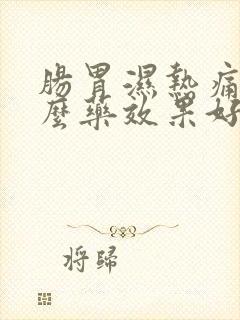 腸胃濕熱痛
麼藥效果好
将歸